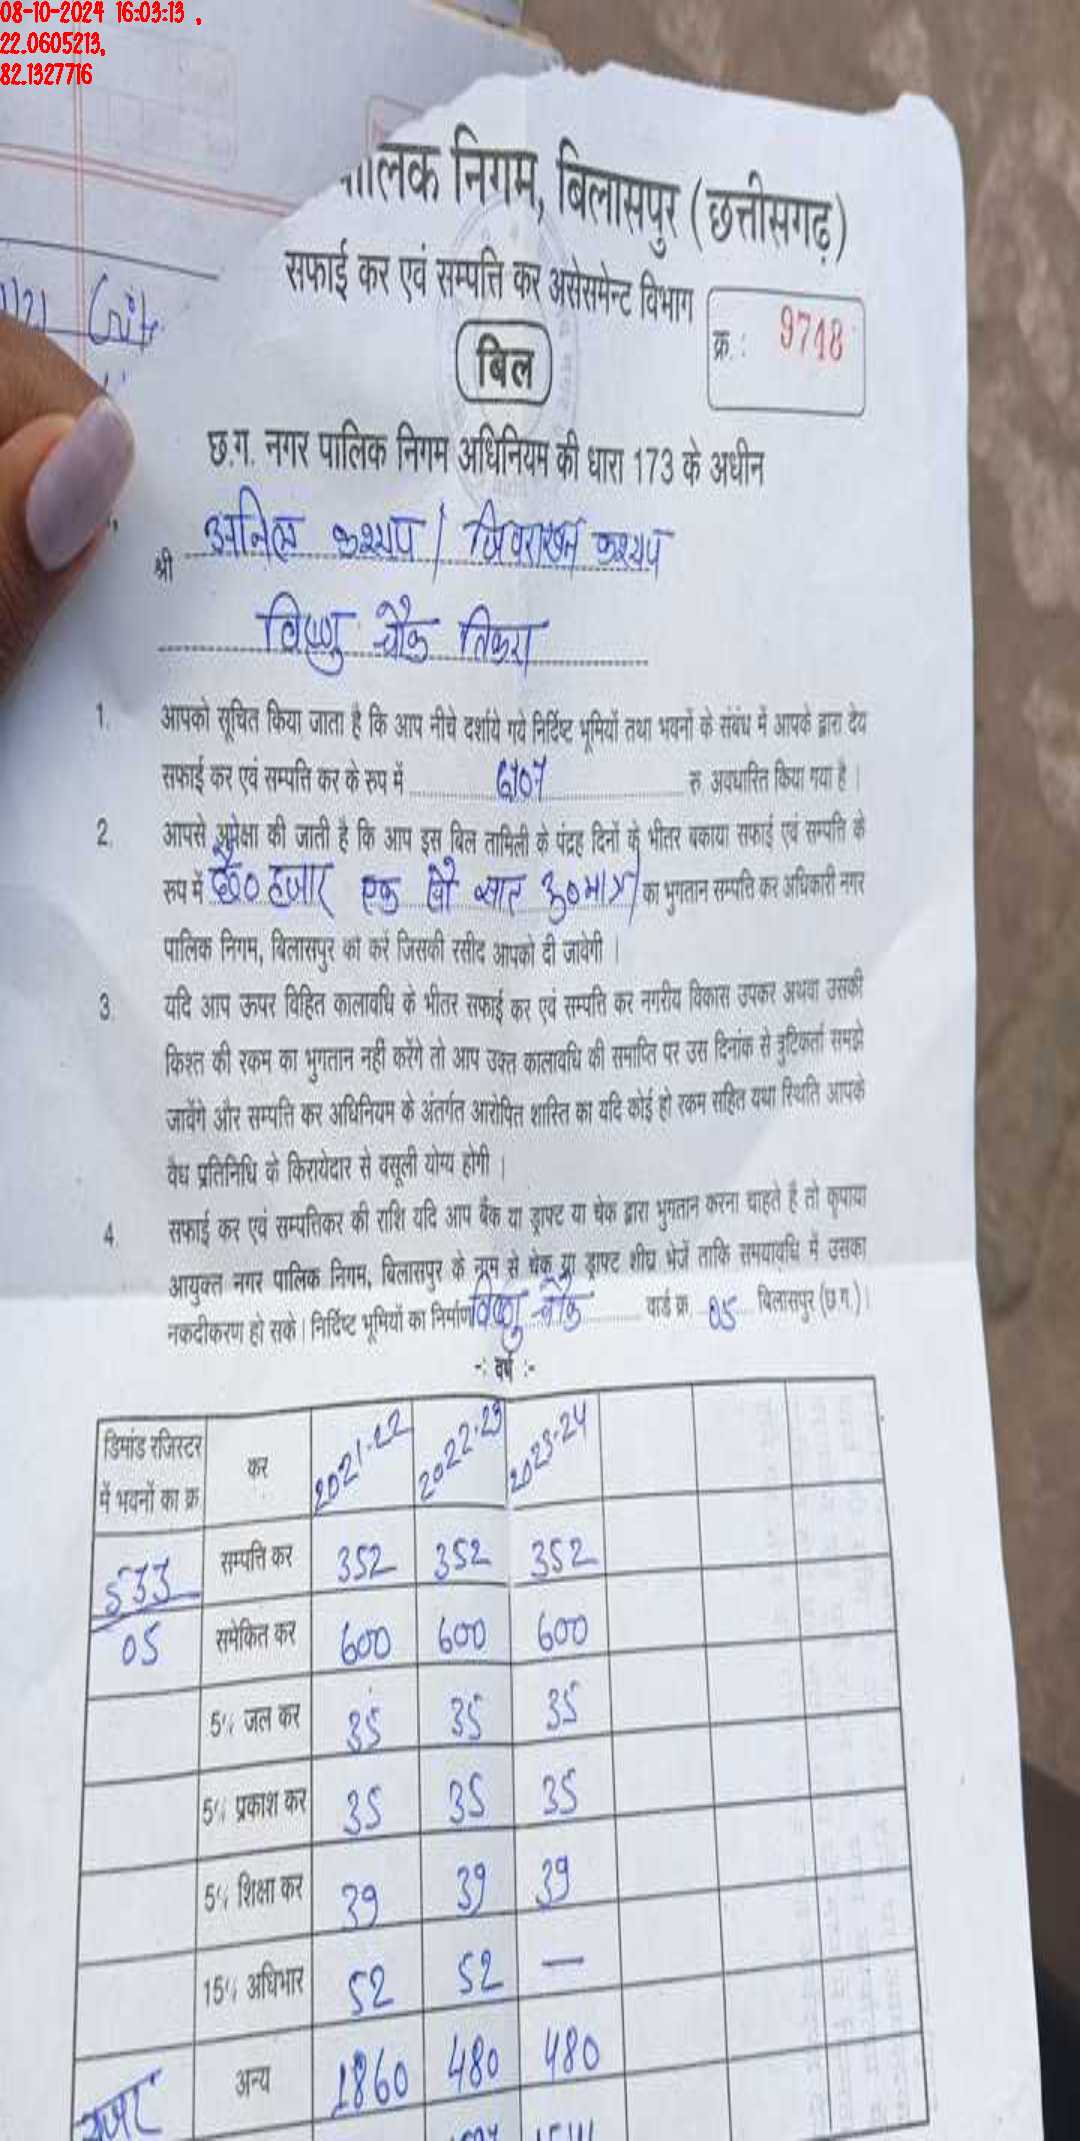 08-10-2024 16:03:13 ,
22.0605213,
82.1327716
पालिक निगम, बिलासपुर (छत्तीसगढ़)
सफाई कर एवं सम्पत्ति कर असेसमेन्ट विभाग
क्र. : 9748
बिल
छ.ग. नगर पालिक निगम अधिनियम की धारा 173 के अधीन
श्री अनिल कश्यप / शिवराखन कश्यप
विष्णु चौक तिफरा
1. आपको सूचित किया जाता है कि आप नीचे दर्शाये गये निर्दिष्ट भूमियों तथा भवनों के संबंध में आपके द्वारा देय
सफाई कर एवं सम्पत्ति कर के रुप में 6107 रु अवधारित किया गया है ।
2. आपसे अपेक्षा की जाती है कि आप इस बिल तामिली के पंद्रह दिनों के भीतर बकाया सफाई एवं सम्पत्ति के
रुप में छै० हजार एक सौ सात रु० मात्र का भुगतान सम्पत्ति कर अधिकारी नगर
पालिक निगम, बिलासपुर को करें जिसकी रसीद आपको दी जावेगी ।
3. यदि आप ऊपर विहित कालावधि के भीतर सफाई कर एवं सम्पत्ति कर नगरीय विकास उपकर अथवा उसकी
किश्त की रकम का भुगतान नही करेंगे तो आप उक्त कालावधि की समाप्ति पर उस दिनांक से त्रुटिकर्ता समझे
जावेंगे और सम्पत्ति कर अधिनियम के अंतर्गत आरोपित शास्ति का यदि कोई हो रकम सहित यथा स्थिति आपके
वैध प्रतिनिधि के किरायेदार से वसूली योग्य होगी ।
4. सफाई कर एवं सम्पत्तिकर की राशि यदि आप बैंक या ड्राफ्ट या चेक द्वारा भुगतान करना चाहते है तो कृपाया
आयुक्त नगर पालिक निगम, बिलासपुर के नाम से चेक या ड्राफ्ट शीघ्र भेजें ताकि समयावधि में उसका
नकदीकरण हो सके । निर्दिष्ट भूमियों का निर्माण विष्णु चौक वार्ड क्र 05 बिलासपुर (छ.ग.) ।
-: वर्ष :-
डिमांड रजिस्टर में भवनों का क्र कर 2021-22 2022-23 2023-24
533 सम्पत्ति कर 352 352 352
05 समेकित कर 600 600 600
5% जल कर 35 35 35
5% प्रकाश कर 35 35 35
5% शिक्षा कर 39 39 39
15% अधिभार 52 52 —
अन्य 1860 480 480